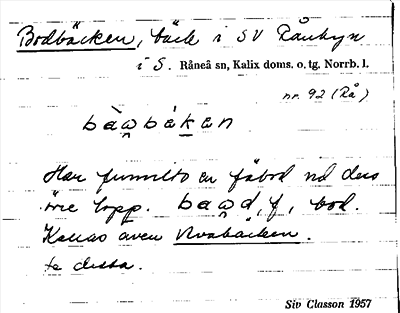 Bodbäcken, bäck i SV Rånbyn
i S. Råneå sn, Kalix doms. o. tg. Norrb. l.
nr. 92 (Rå)
bàωbákən
Har funnits en fäbod vid dess
övre lopp. baωd, f, bod.
Kallas även Kvabäcken.
te dessa.
Siv Classon 1957